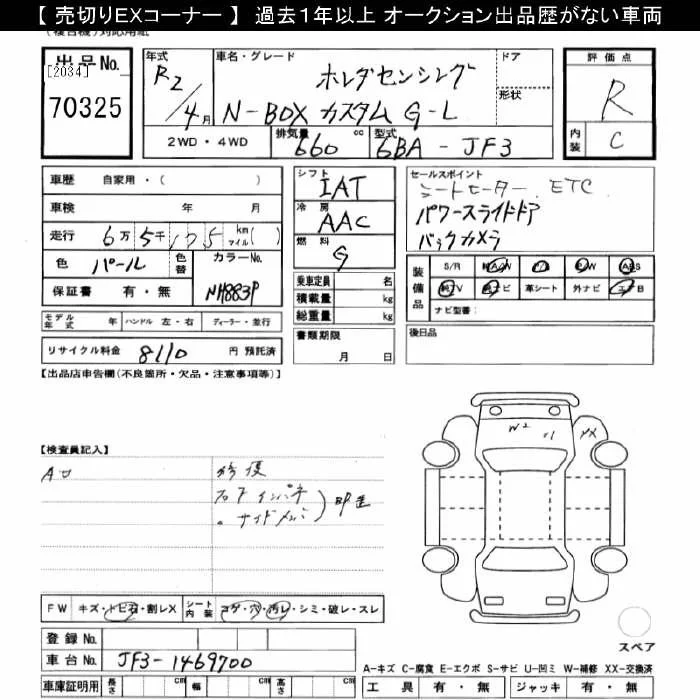 【 売切りEXコーナー 】 過去１年以上 オークション出品歴がない車両
(複合機)対応用紙
出品No.
[2034]
70325
年式
R2/4月
車名・グレード
ホンダセンシング
N-BOX カスタム G-L
ドア
形状
評価点
R
内装
C
2WD・4WD
排気量
660 cc
型式
6BA - JF3
車歴 自家用・( )
車検 年 月
走行 6万5千175 km マイル( )
色 パール
色替
カラーNo.
NH883P
保証書 有・無
モデル年式 年
ハンドル 左・右
ディーラー・並行
リサイクル料金 8110 円 預託済
シフト
IAT
冷房
AAC
燃料
G
乗車定員 名
積載量 kg
総重量 kg
書類期限
月 日
セールスポイント
シートヒーター ETC
パワースライドドア
バックカメラ
装備品
S/R A/W P/S P/W ABS
TV ナビ 革シート 外ナビ エアB
ナビ型番:
後日品
【出品店申告欄(不良箇所・欠品・注意事項等)】
【検査員記入】
A口
修復
右Fインパネ
サイドメンバ
W2
U1
XX
FW キズ・トビ石・割レX
シート内装 コゲ・穴・汚レ・シミ・破レ・スレ
登録No.
車台No. JF3-1469700
車庫証明用 長さ cm 幅 cm 高さ cm
スペア
A-キズ C-腐食 E-エクボ S-サビ U-凹ミ W-補修 XX-交換済
工具 有・無 ジャッキ 有・無